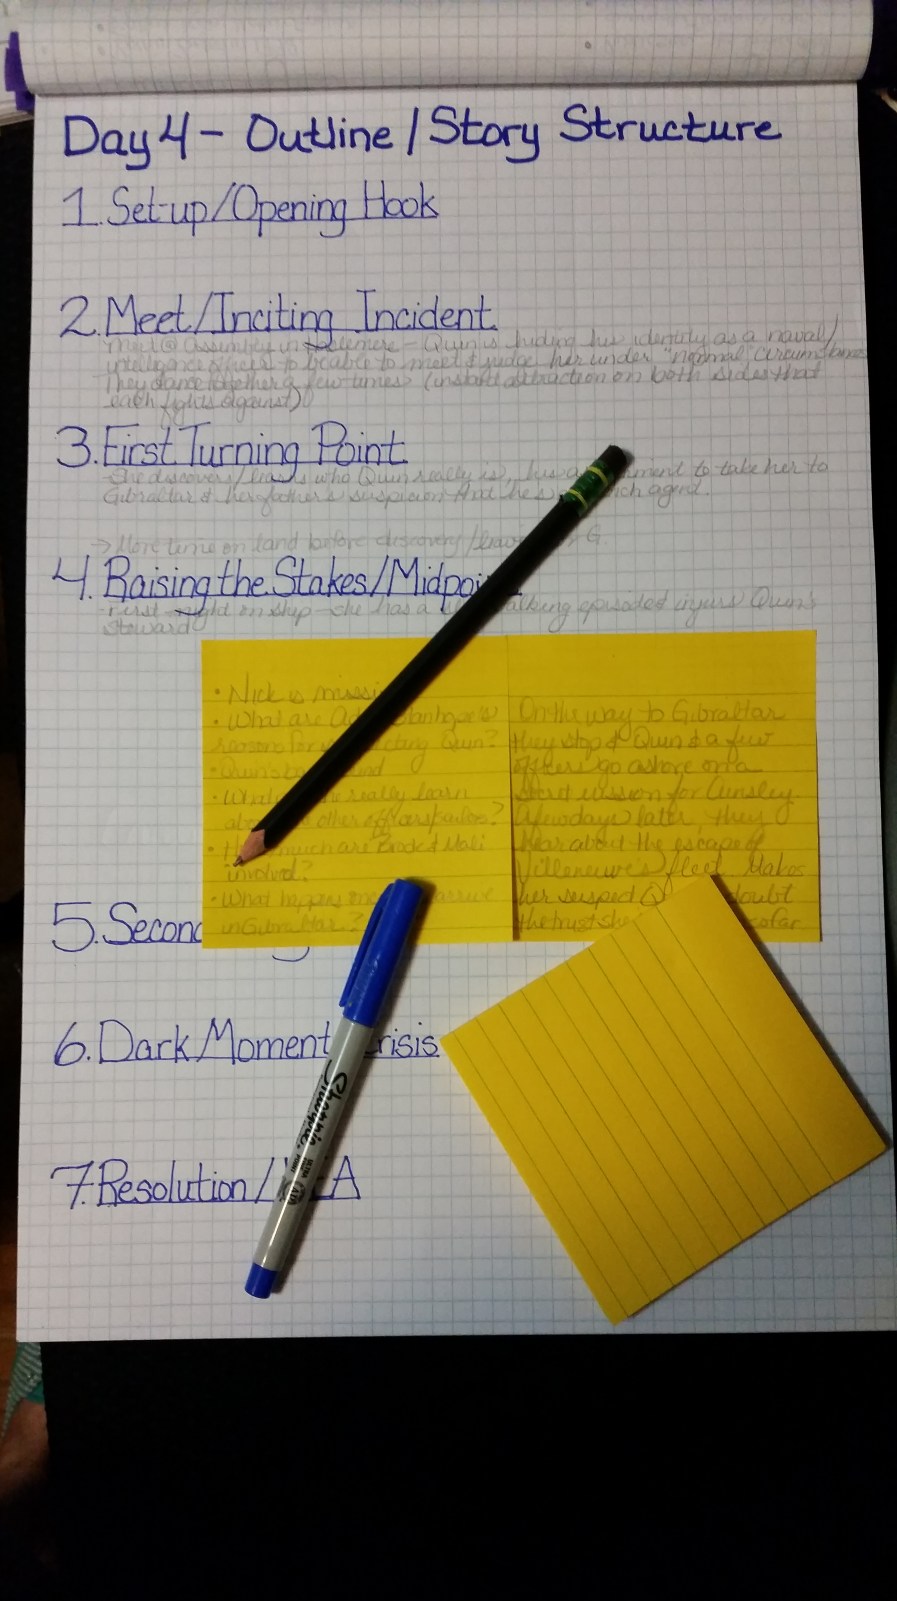 Day 4 - Outline / Story Structure
1. Set-up/Opening Hook
2. Meet/Inciting Incident
meet @ assembly in - Quin is hiding his identity as a naval/
intelligence officer to be able to meet & judge her under "normal" circumstances
They dance together a few times (instant attraction on both sides that
each fights against)
3. First Turning Point
- She discovers/learns who Quin really is, his to take her to
Gibraltar & her father's suspicion that he's agent.
→ More time on land before discovery/ G.
4. Raising the Stakes/Midpoi
- First night on ship - she has a alking episode & injurs Quin's
steward
• Nick is missi
• What are Ad anhope's
reasons for cting Quin?
• Quin's ba nd
• What really learn
abo other officers
• H much are Brock & Mali
involved?
• What happens arrive
in Gibraltar?
On the way to Gibraltar
they stop & Quin & a few
officers go ashore on a
secret mission for
A few days later they
hear about the escape of
Villeneuve's fleet. Makes
her suspect Q doubt
the trust she so far
5. Second
6. Dark Moment risis
7. Resolution/ A
Sharpie
ULTRA